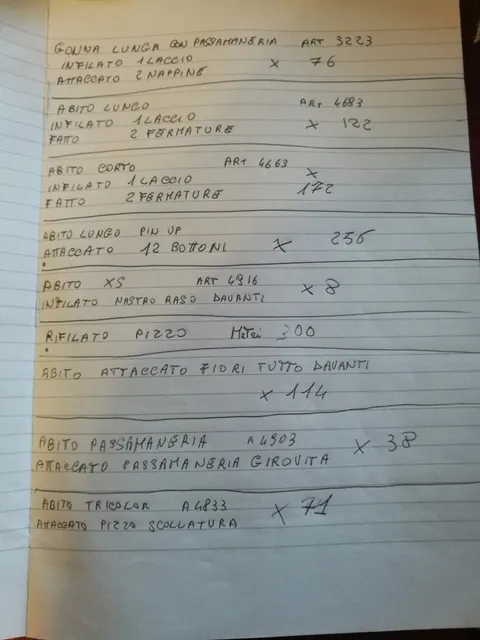 GONNA LUNGA CON PASSAMANERIA ART 3223
INFILATO 1 LACCIO X 76
ATTACCATO 2 NAPPINE
ABITO LUNGO ART 4683
INFILATO 1 LACCIO X 122
FATTO 2 FERMATURE
ABITO CORTO ART 4663
INFILATO 1 LACCIO X
FATTO 2 FERMATURE 172
ABITO LUNGO PIN UP
ATTACCATO 12 BOTTONI X 256
ABITO XS ART 4916
INFILATO NASTRO RASO DAVANTI X 8
RIFILATO PIZZO METRI 300
ABITO ATTACCATO FIORI TUTTO DAVANTI
X 114
ABITO PASSAMANERIA A 4903 X 38
ATTACCATO PASSAMANERIA GIROVITA
ABITO TRICOLOR A 4833 X 71
ATTACCATO PIZZO SCOLLATURA